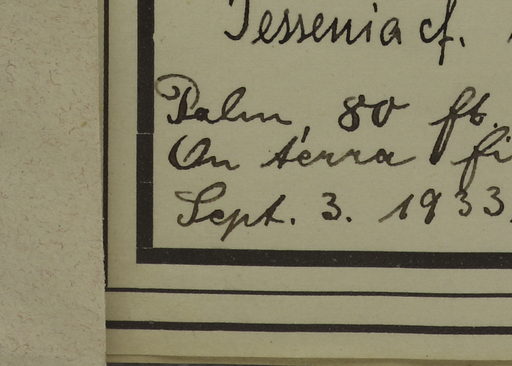 Jessenia cf.
Palm, 80 ft.
On terra fi
Sept. 3. 1933.